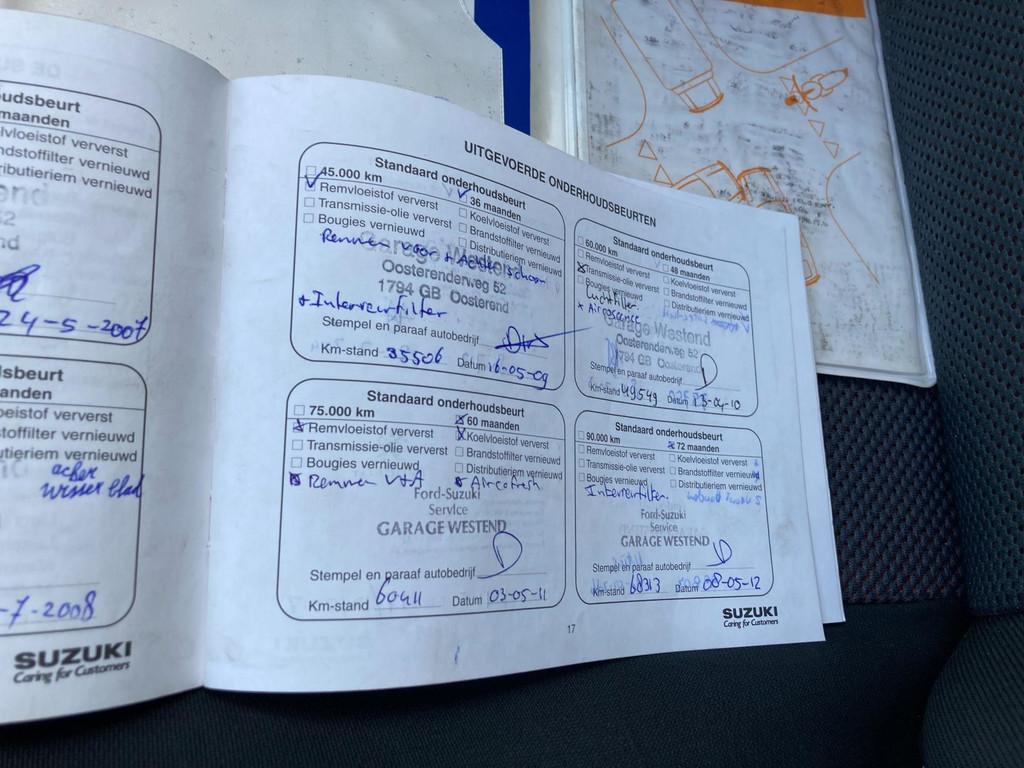 udsbeurt
maanden
elvloeistof ververst
ndstoffilter vernieuwd
ributieriem vernieuwd
end
52
nd
24-5-2007
sbeurt
anden
eistof ververst
toffilter vernieuwd
utieriem vernieuwd
achter
wisser blad
-7-2008
SUZUKI
Caring for Customers
UITGEVOERDE ONDERHOUDSBEURTEN
Standaard onderhoudsbeurt
45.000 km
36 maanden
Remvloeistof ververst
Koelvloeistof ververst
Transmissie-olie ververst
Brandstoffilter vernieuwd
Bougies vernieuwd
Distributieriem vernieuwd
Remmen voor + Achter schoon
Garage Westend
Oosterenderweg 52
1794 GB Oosterend
+ Interieurfilter
Stempel en paraaf autobedrijf
Km-stand 35506 Datum 16-05-09
Standaard onderhoudsbeurt
60.000 km
48 maanden
Remvloeistof ververst
Koelvloeistof ververst
Transmissie-olie ververst
Brandstoffilter vernieuwd
Bougies vernieuwd
Distributieriem vernieuwd
Luchtfilter
Garage Westend
Oosterenderweg 52
1794 GB Oosterend
Stempel en paraaf autobedrijf
Km-stand 49549 Datum 13-04-10
Standaard onderhoudsbeurt
75.000 km
60 maanden
Remvloeistof ververst
Koelvloeistof ververst
Transmissie-olie ververst
Brandstoffilter vernieuwd
Bougies vernieuwd
Distributieriem vernieuwd
Remmen V+A
Aircofresh
Ford-Suzuki
Service
GARAGE WESTEND
Stempel en paraaf autobedrijf
Km-stand 60411 Datum 03-05-11
Standaard onderhoudsbeurt
90.000 km
72 maanden
Remvloeistof ververst
Koelvloeistof ververst
Transmissie-olie ververst
Brandstoffilter vernieuwd
Bougies vernieuwd
Distributieriem vernieuwd
Interieurfilter
Ford-Suzuki
Service
GARAGE WESTEND
Stempel en paraaf autobedrijf
Km-stand 68313 Datum 08-05-12
17
SUZUKI
Caring for Customers